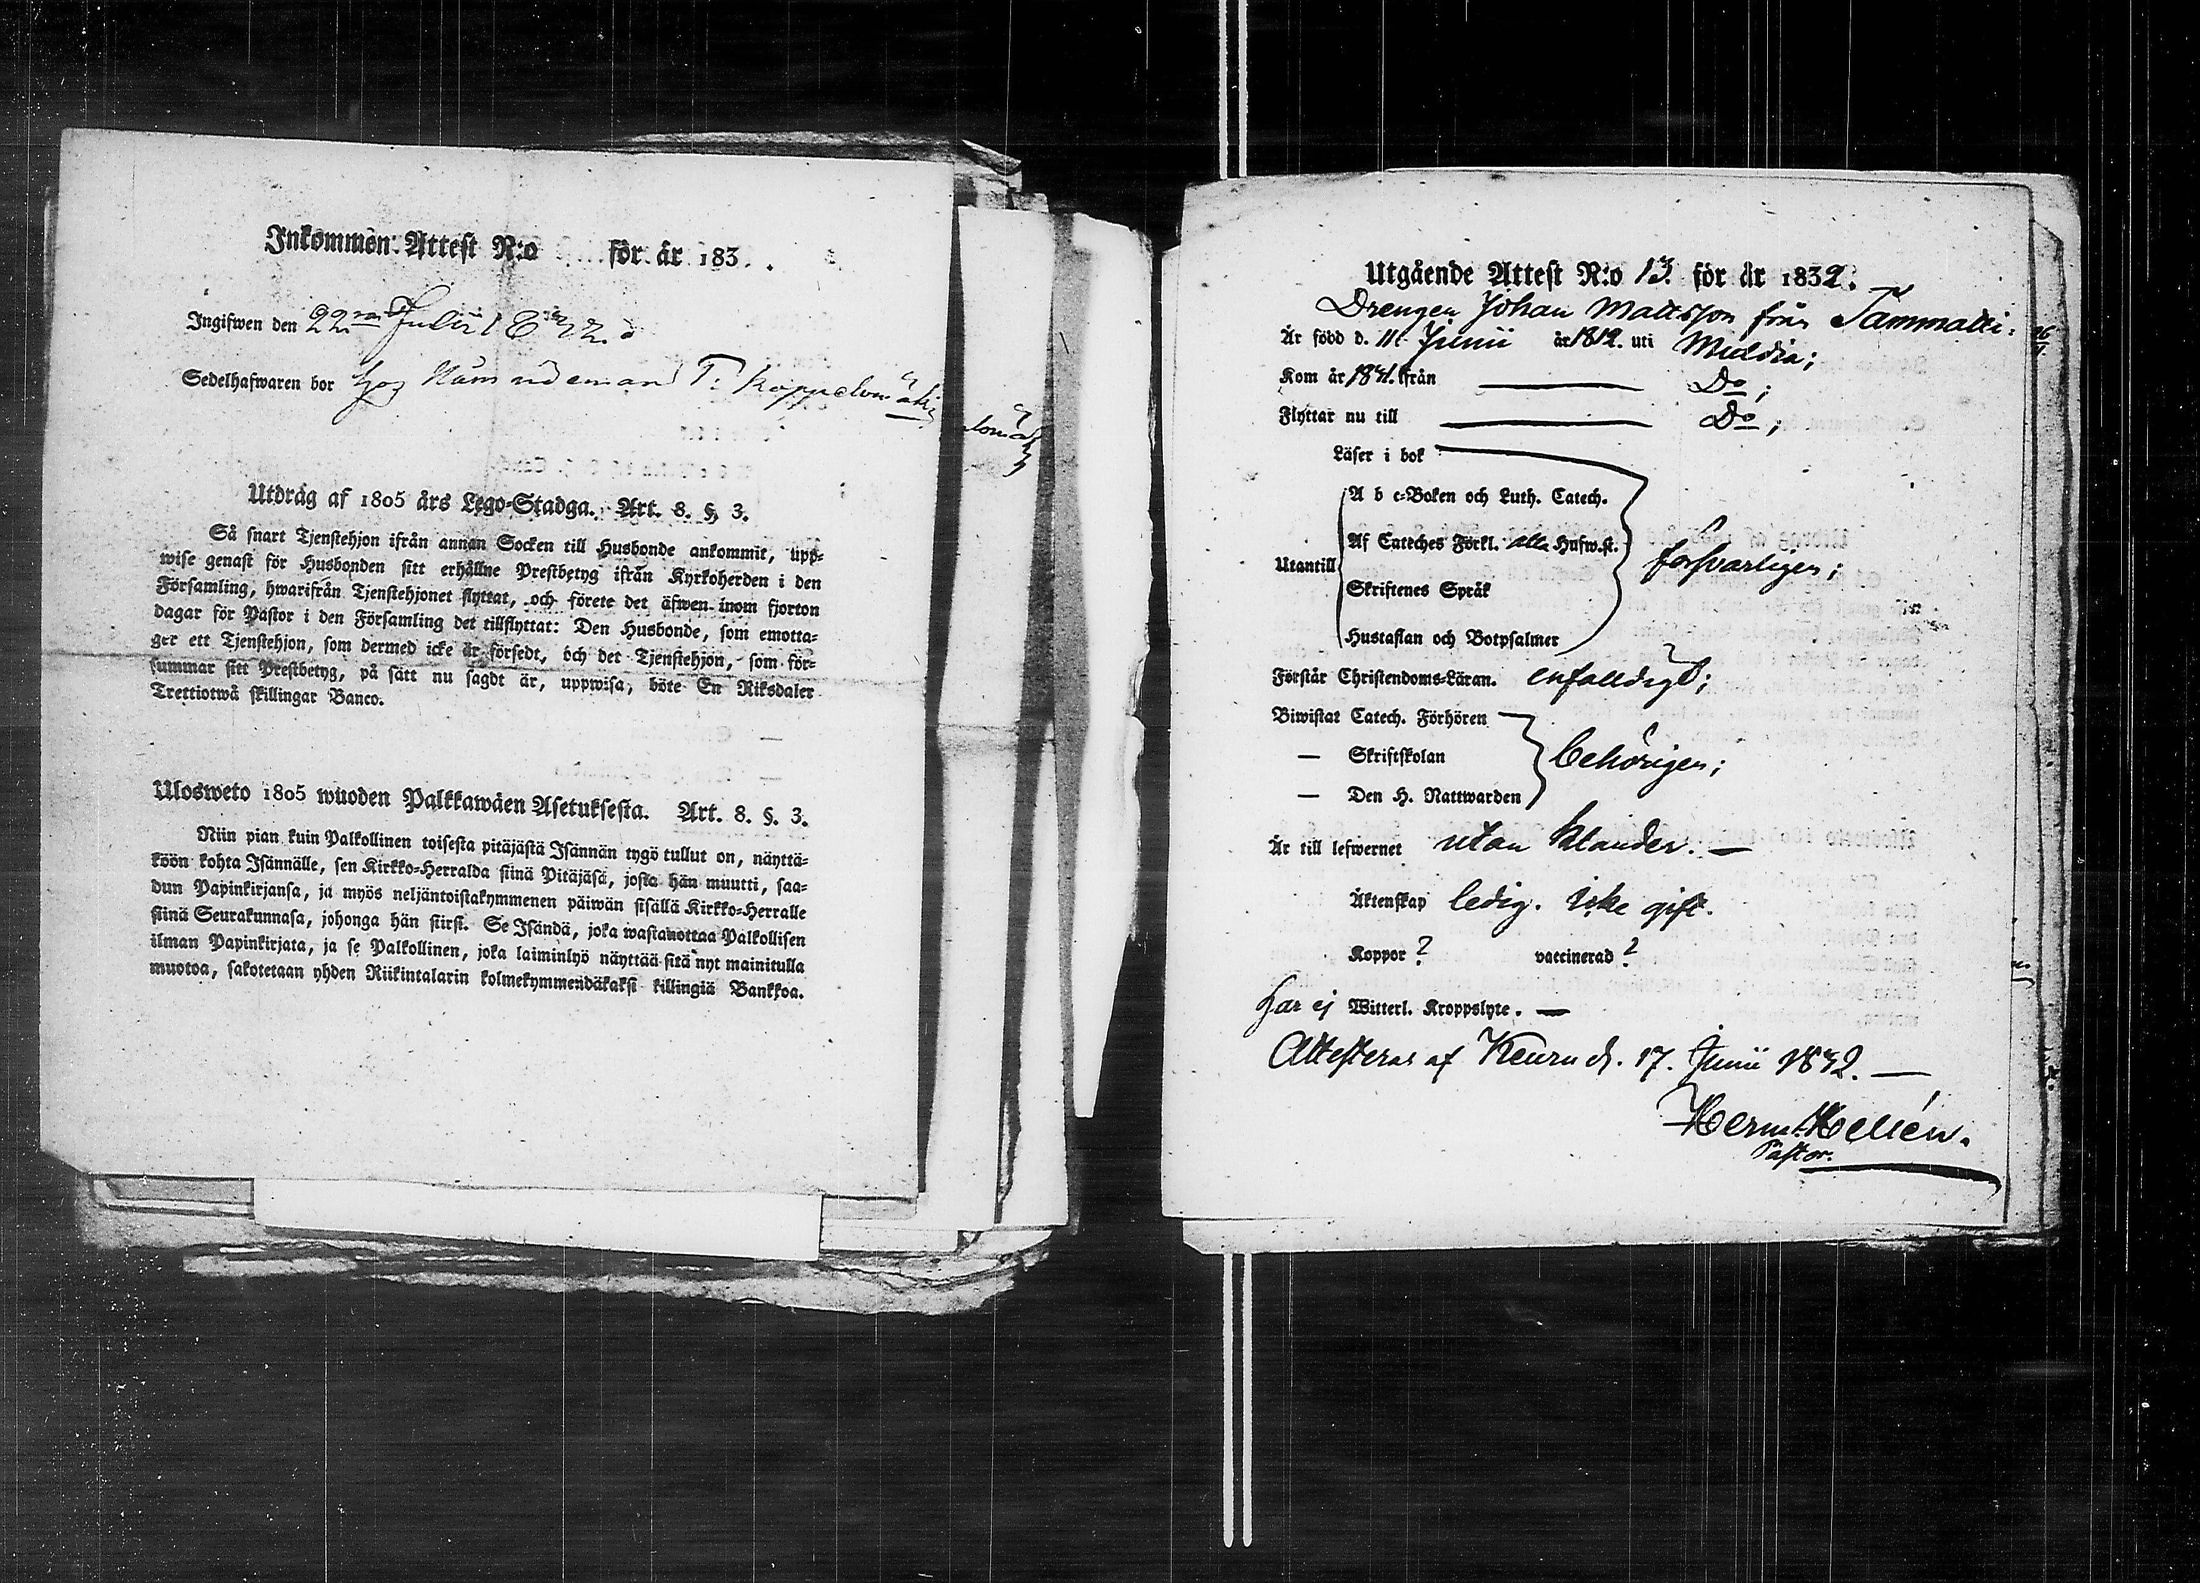 Inkommen Attest N:o för år 183 .
Ingifwen den 22 Julii
Sedelhafwaren bor hos Nämndeman T. Koppelomäki
Utdrag af 1805 års Lego-Stadga. Art. 8. §. 3.
Så snart Tjenstehjon ifrån annan Socken till Husbonde ankommit, upp-
wise genast för Husbonden sitt erhållne Prestbetyg ifrån Kyrkoherden i den
Församling, hwarifrån Tjenstehjonet flyttat, och förete det äfwen inom fjorton
dagar för Pastor i den Församling det tillflyttat: Den Husbonde, som emotta-
ger ett Tjenstehjon, som dermed icke är försedt, och det Tjenstehjon, som för-
summar sitt Prestbetyg, på sätt nu sagdt är, uppwisa, böte En Riksdaler
Trettiotwå skillingar Banco.
Ulosweto 1805 wuoden Palkkawäen Asetuksesta. Art. 8. §. 3.
Niin pian kuin Palkollinen toisesta pitäjästä Isännän tygö tullut on, näyttä-
köön kohta Isännälle, sen Kirkko-Herralda siinä Pitäjäsä, josta hän muutti, saa-
dun Papinkirjansa, ja myös neljäntoistakymmenen päiwän sisällä Kirkko-Herralle
siinä Seurakunnasa, johonga hän siirst. Se Isändä, joka wastanottaa Palkollisen
ilman Papinkirjata, ja se Palkollinen, joka laiminlyö näyttää sitä nyt mainitulla
muotoa, sakotetaan yhden Riikintalarin kolmekymmendäkaksi killingiä Bankkoa.
Utgående Attest N:o 13. för år 1832.
Drengen Johan Mattsson från Tammatti:
Är född d. 11 Junii år 1812. uti Muldia;
Kom år 1831. ifrån — Do;
Flyttar nu till — Do;
Läser i bok
A b c-Boken och Luth. Catech.
Af Cateches Förkl. alla Hufw.st.
Utantill försvarligen;
Skriftenes Språk
Hustaflan och Botpsalmer
Förstår Christendoms-Läran. enfaldigt;
Biwistat Catech. Förhören
— Skriftskolan behörigen;
— Den H. Nattwarden
Är till lefwernet utan klander. —
Äktenskap ledig. icke gift.
Koppor ? vaccinerad ?
har ej Witterl. Kroppslyte. —
Attesteras af Keuru d. 17. Junii 1832. —
Herm. Hellén.
Pastor.